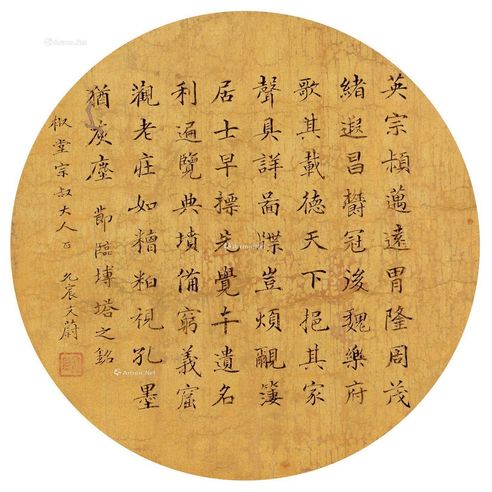 英宗頠萬遠胄隆周茂
緒遐昌欝冠後魏樂府
歌其載德天下挹其家
聲具詳啚諜豈煩覼簿
居士早摽先覺午遺名
利遍覽典墳備窮義窟
觀老莊如糟粕視孔墨
猶灰塵 節臨塼塔之銘
椒堂宗叔大人 九宸文蔚
Artron.Net